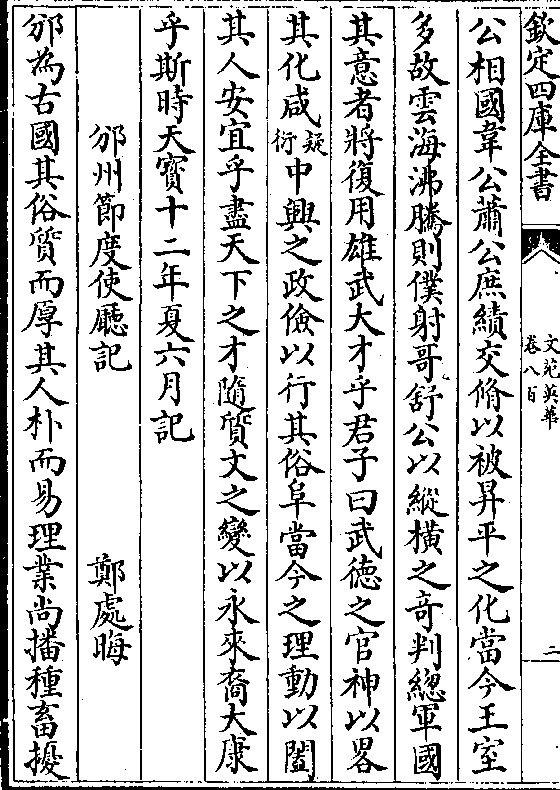 欽定四庫全書
文苑英華
卷八百
二
公相國韋公蕭公庶績交脩以被昇平之化當今王室
多故雲海沸騰則僕射哥舒公以縱横之竒判總軍國
其意者將復用雄武大才乎君子曰武徳之官神以畧
其化咸疑衍中興之政儉以行其俗阜當今之理動以闔
其人安宜乎盡天下之才隨質文之變以永來裔大康
乎斯時天寳十二年夏六月記
邠州節度使廳記 鄭處晦
邠為古國其俗質而厚其人朴而易理業尚播種畜擾